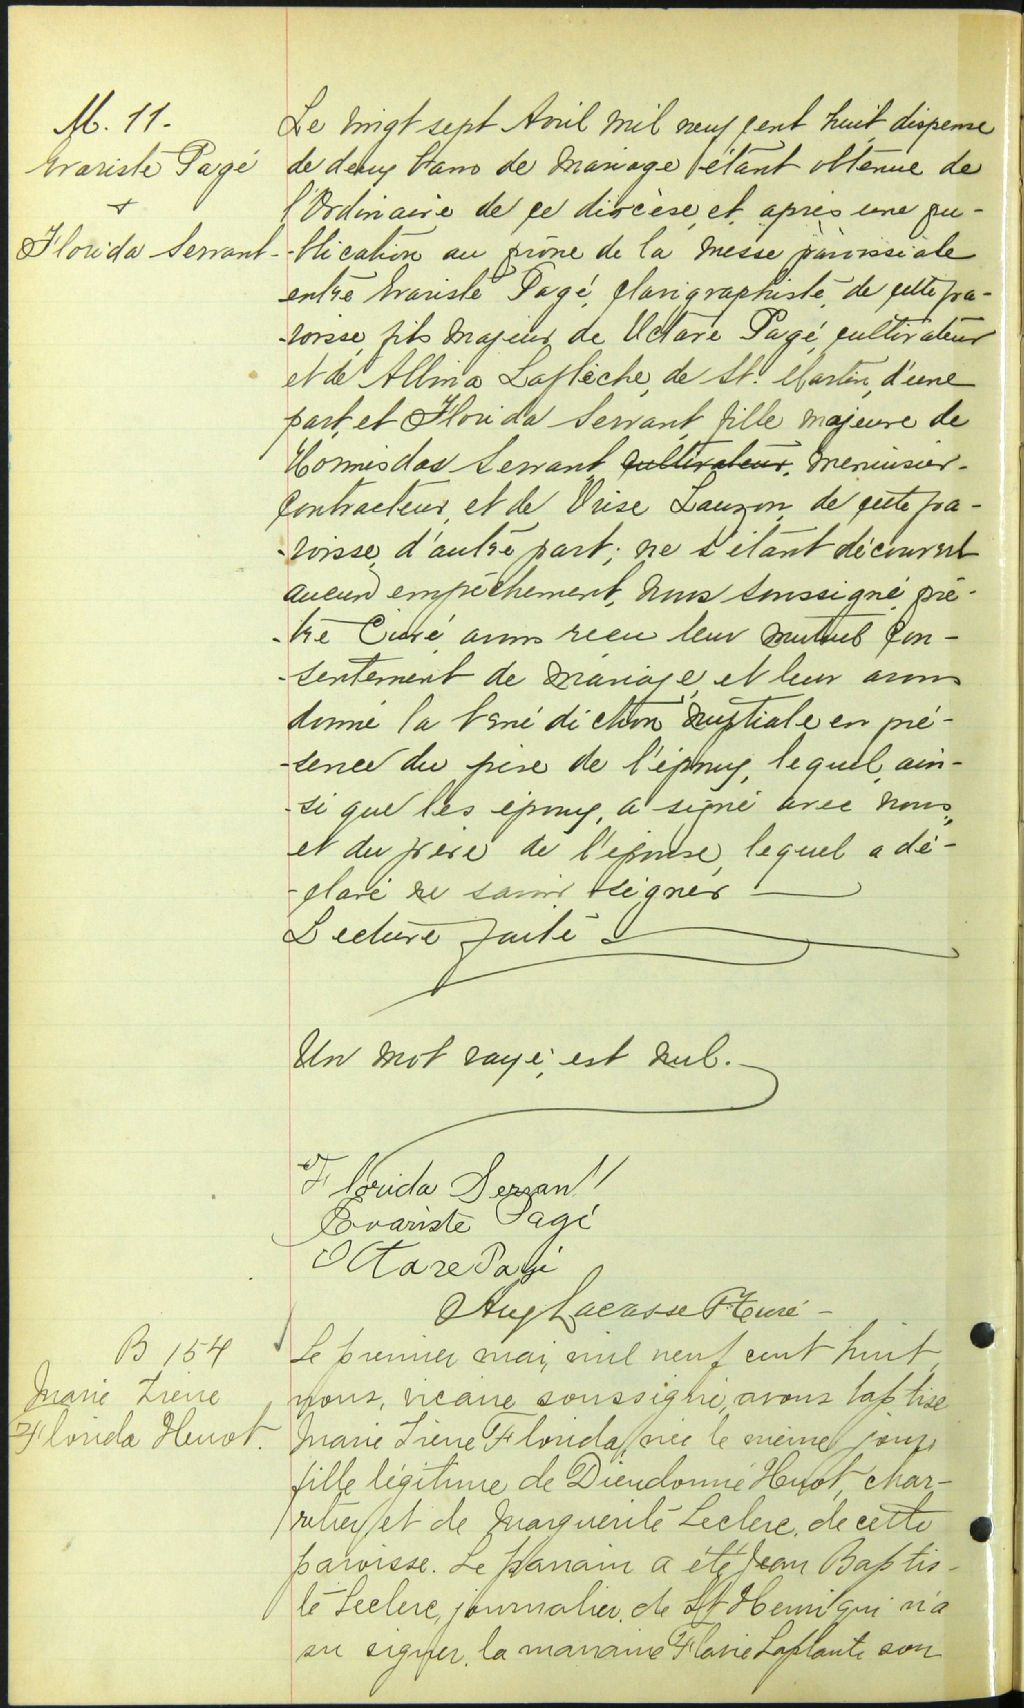 M. 11.
Evariste Pagé
+
Florida Serrant
Le vingt-sept Avril mil neuf cent huit dispense
de deux bans de mariage étant obtenue de
l'Ordinaire de ce diocèse, et après une pu-
-blication au prône de la messe paroissiale
entre Evariste Pagé, clavigraphiste, de cette pa-
-roisse, fils majeur de Octave Pagé, cultivateur
et de Albina Laflèche, de St. Martin, d'une
part, et Florida Serrant, fille majeure de
Hormisdas Serrant, cultivateur, menuisier-
contracteur, et de Orise Lauzon, de cette pa-
-roisse, d'autre part; ne s'étant découvert
aucun empêchement, nous soussigné, prê-
-tre Curé, avons reçu leur mutuel con-
-sentement de mariage, et leur avons
donné la bénédiction nuptiale en pré-
-sence du père de l'époux, lequel, ain-
-si que les époux, a signé avec nous,
et du père de l'épouse, lequel a dé-
-claré ne savoir signer
Lecture faite
Un mot rayé, est nul.
Florida Serrant
Evariste Pagé
Octave Pagé
Aug Lacasse Ptre curé
B 154
Marie Irène
Florida Huot.
Le premier mai, mil neuf cent huit,
nous, vicaire soussigné, avons baptisé
Marie Irène Florida, née le même jour,
fille légitime de Dieudonné Huot, char-
retier, et de Marguerite Leclerc, de cette
paroisse. Le parrain a été Jean Baptis-
te Leclerc, journalier, de St Henri qui n'a
su signer, la marraine Flavie Laplante son